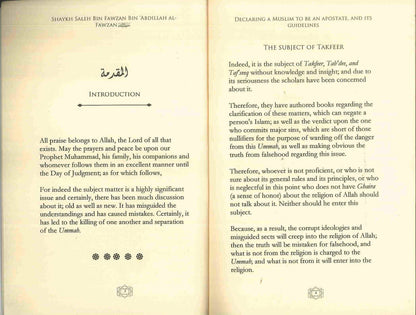 SHAYKH SALEH BIN FAWZAN BIN 'ABDILLAH AL-
FAWZAN
المقدمة
INTRODUCTION
All praise belongs to Allah, the Lord of all that
exists. May the prayers and peace be upon our
Prophet Muhammad, his family, his companions and
whomever follows them in an excellent manner until
the Day of Judgment; as for which follows,
For indeed the subject matter is a highly significant
issue and certainly, there has been much discussion
about it; old as well as new. It has misguided the
understandings and has caused mistakes. Certainly, it
has led to the killing of one another and separation
of the Ummah.
DECLARING A MUSLIM TO BE AN APOSTATE, AND ITS
GUIDELINES
THE SUBJECT OF TAKFEER
Indeed, it is the subject of Takfeer, Tab'dee, and
Tafseeq without knowledge and insight; and due to
its seriousness the scholars have been concerned
about it.
Therefore, they have authored books regarding the
clarification of these matters, which can negate a
person's Islam; as well as the verdict upon the one
who commits major sins, which are short of those
nullifiers for the purpose of warding off the danger
from this Ummah, as well as making obvious the
truth from falsehood regarding this issue.
Therefore, whoever is not proficient, or who is not
sure about its general rules and its principles, or who
is neglectful in this point who does not have Gheira
(a sense of honor) about the religion of Allah should
not talk about it. Neither should he enter this
subject.
Because, as a result, the corrupt ideologies and
misguided sects will creep into the religion of Allah;
then the truth will be mistaken for falsehood, and
what is not from the religion is charged to the
Ummah; and what is not from it will enter into the
religion.